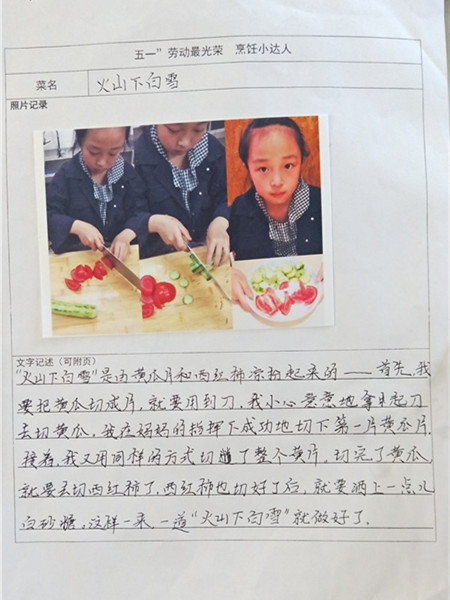 五一”劳动最光荣 烹饪小达人
菜名 火山下白雪
照片记录
文字记述(可附页)
“火山下白雪”是由黄瓜片和西红柿凉拌起来的——首先,我
要把黄瓜切成片,就要用到刀,我小心意意地拿起刀
去切黄瓜,我在妈妈的指挥下成功地切下第一片黄瓜片.
接着,我又用同样的方式切了整个黄片,切完了黄瓜
就要去切西红柿了,西红柿也切好了后,就要洒上一点儿
白砂糖,这样一来,一道“火山下白雪”就做好了.